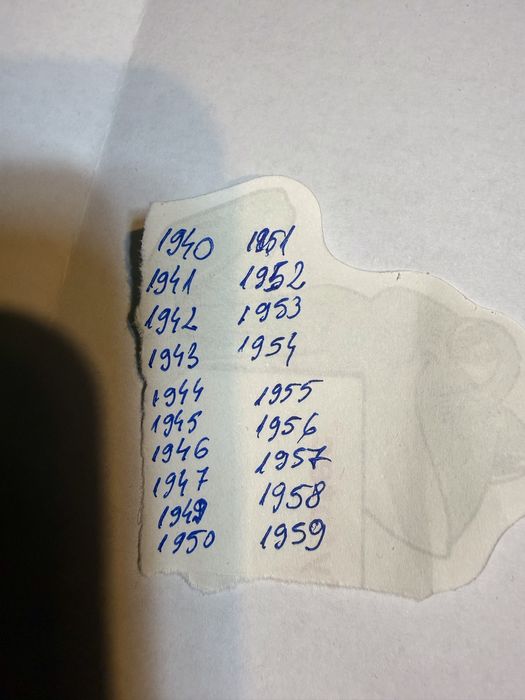 1940
1941
1942
1943
1944
1945
1946
1947
1949
1950
1951
1952
1953
1954
1955
1956
1957
1958
1959